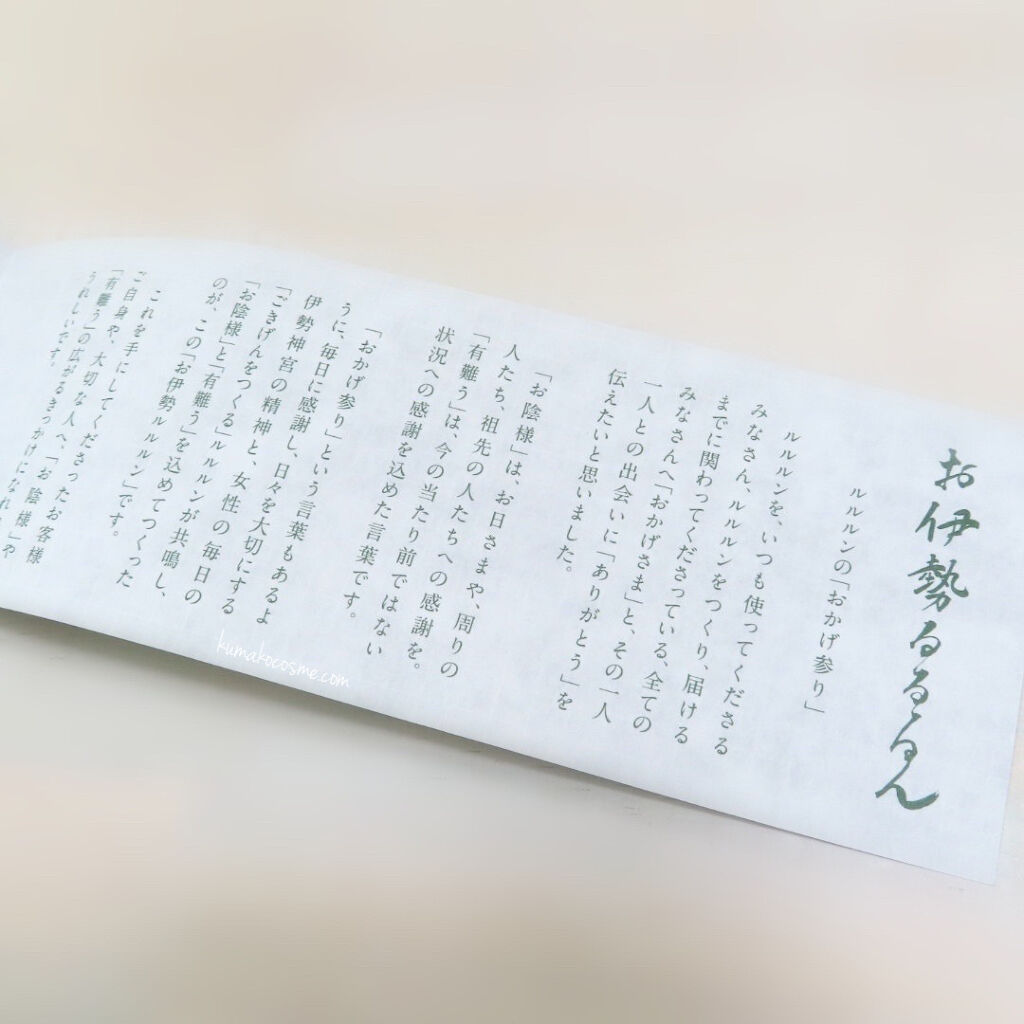 お伊勢るるるん
ルルルンの「おかげ参り」
ルルルンを、いつも使ってくださる
みなさん、ルルルンをつくり、届ける
までに関わってくださっている、全ての
みなさんへ「おかげさま」と、その一人
一人との出会いに「ありがとう」を
伝えたいと思いました。
「お陰様」は、お日さまや、周りの
人たち、祖先の人たちへの感謝を。
「有難う」は、今の当たり前ではない
状況への感謝を込めた言葉です。
「おかげ参り」という言葉もあるよ
うに、毎日に感謝し、日々を大切にする
伊勢神宮の精神と、女性の毎日の
「ごきげんをつくる」ルルルンが共鳴し、
「お陰様」と「有難う」を込めてつくった
のが、この「お伊勢ルルルン」です。
これを手にしてくださったお客様
ご自身や、大切な人へ、「お陰様」や
「有難う」の広がるきっかけになれ
うれしいです。
kumakocosme.com